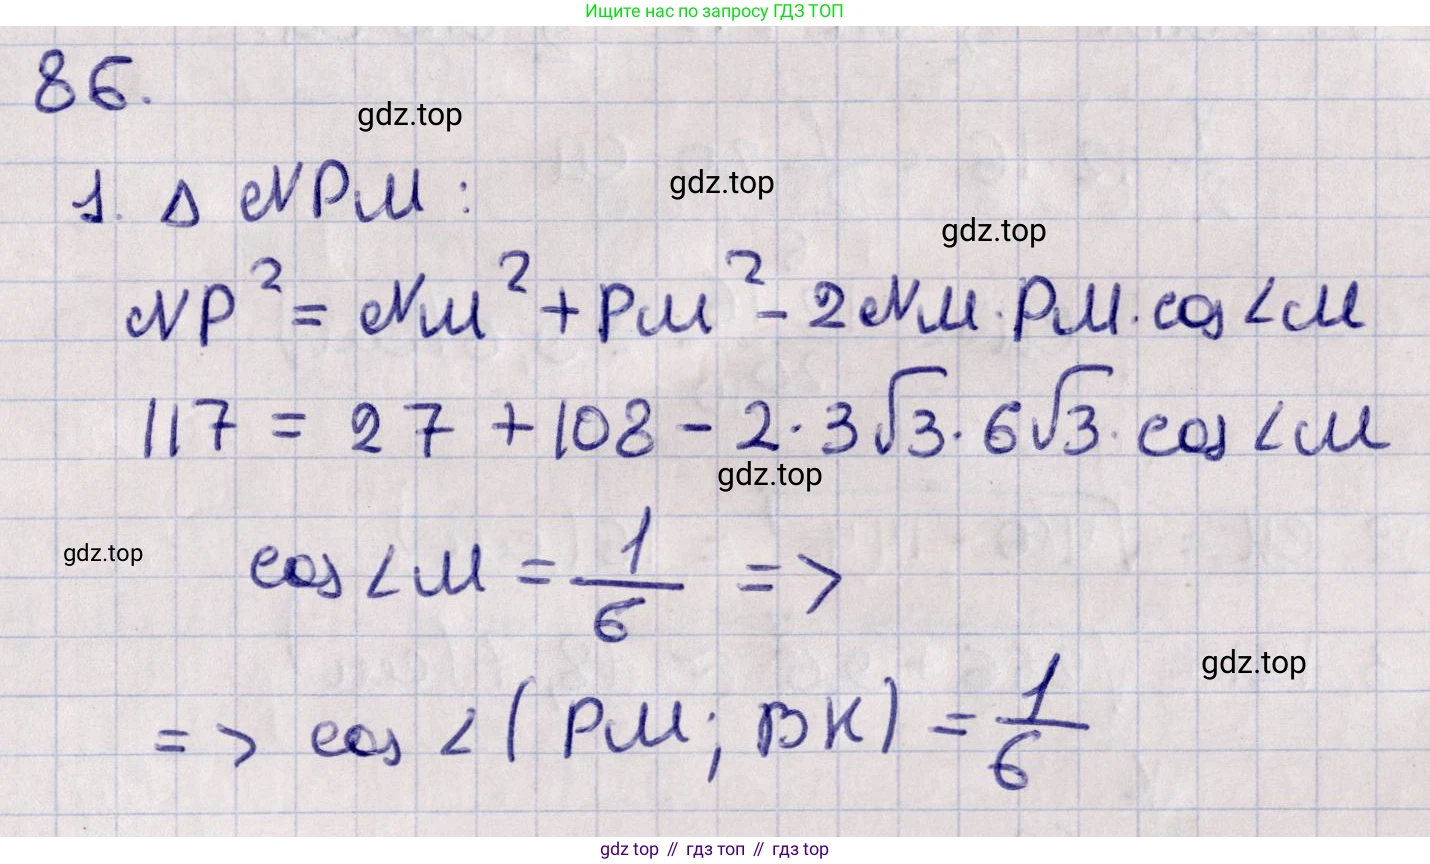 Ищите нас по запросу ГДЗ ТОП
86.
gdz.top
1. Δ NPM:
gdz.top
gdz.top
NP² = NM² + PM² - 2NM · PM · cos∠M
117 = 27 + 108 - 2 · 3√3 · 6√3 · cos∠M
gdz.top
gdz.top
cos∠M = 1/6 =>
gdz.top
=> cos∠(PM; BK) = 1/6
gdz top // гдз топ // гдз top